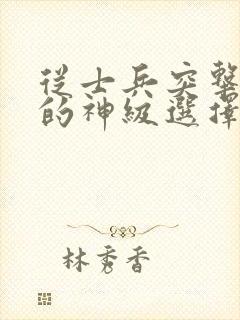 從士兵突擊
的神級選擇
林秀香